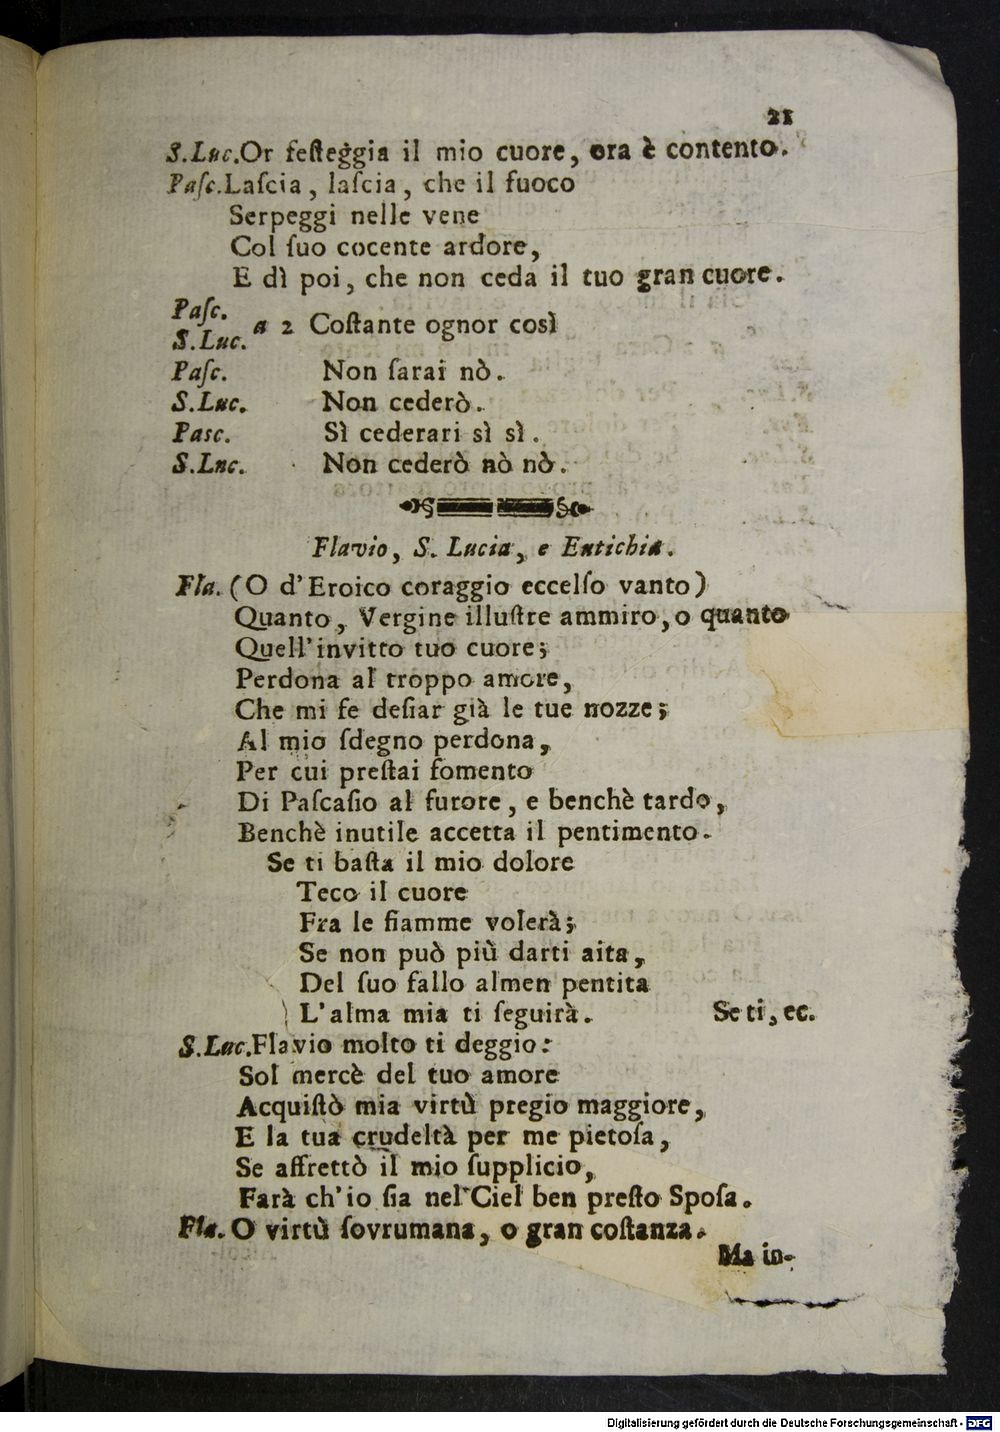 21
S.Luc.Or feſteggia il mio cuore, ora è contento.
Paſc.Laſcia, laſcia, che il fuoco
Serpeggi nelle vene
Col ſuo cocente ardore,
E dì poi, che non ceda il tuo gran cuore.
Paſc.
S.Luc. a 2 Coſtante ognor così
Paſc. Non ſarai nò.
S.Luc. Non cederò.
Pasc. Sì cederari sì sì.
S.Lnc. Non cederò nò nò.
Flavio, S. Lucia, e Eutichia.
Fla. (O d'Eroico coraggio eccelſo vanto)
Quanto, Vergine illuſtre ammiro, o quanto
Quell'invitto tuo cuore;
Perdona al troppo amore,
Che mi fe deſiar già le tue nozze;
Al mio ſdegno perdona,
Per cui preſtai fomento
Di Paſcaſio al furore, e benchè tardo,
Benchè inutile accetta il pentimento.
Se ti baſta il mio dolore
Teco il cuore
Fra le fiamme volerà;
Se non può più darti aita,
Del ſuo fallo almen pentita
L'alma mia ti ſeguirà. Se ti, ec.
S.Luc.Flavio molto ti deggio:
Sol mercè del tuo amore
Acquiſtò mia virtù pregio maggiore,
E la tua crudeltà per me pietoſa,
Se affrettò il mio ſupplicio,
Farà ch'io ſia nel Ciel ben preſto Spoſa.
Fla. O virtù ſovrumana, o gran coſtanza.
Ma in-
Digitalisierung gefördert durch die Deutsche Forschungsgemeinschaft - DFG